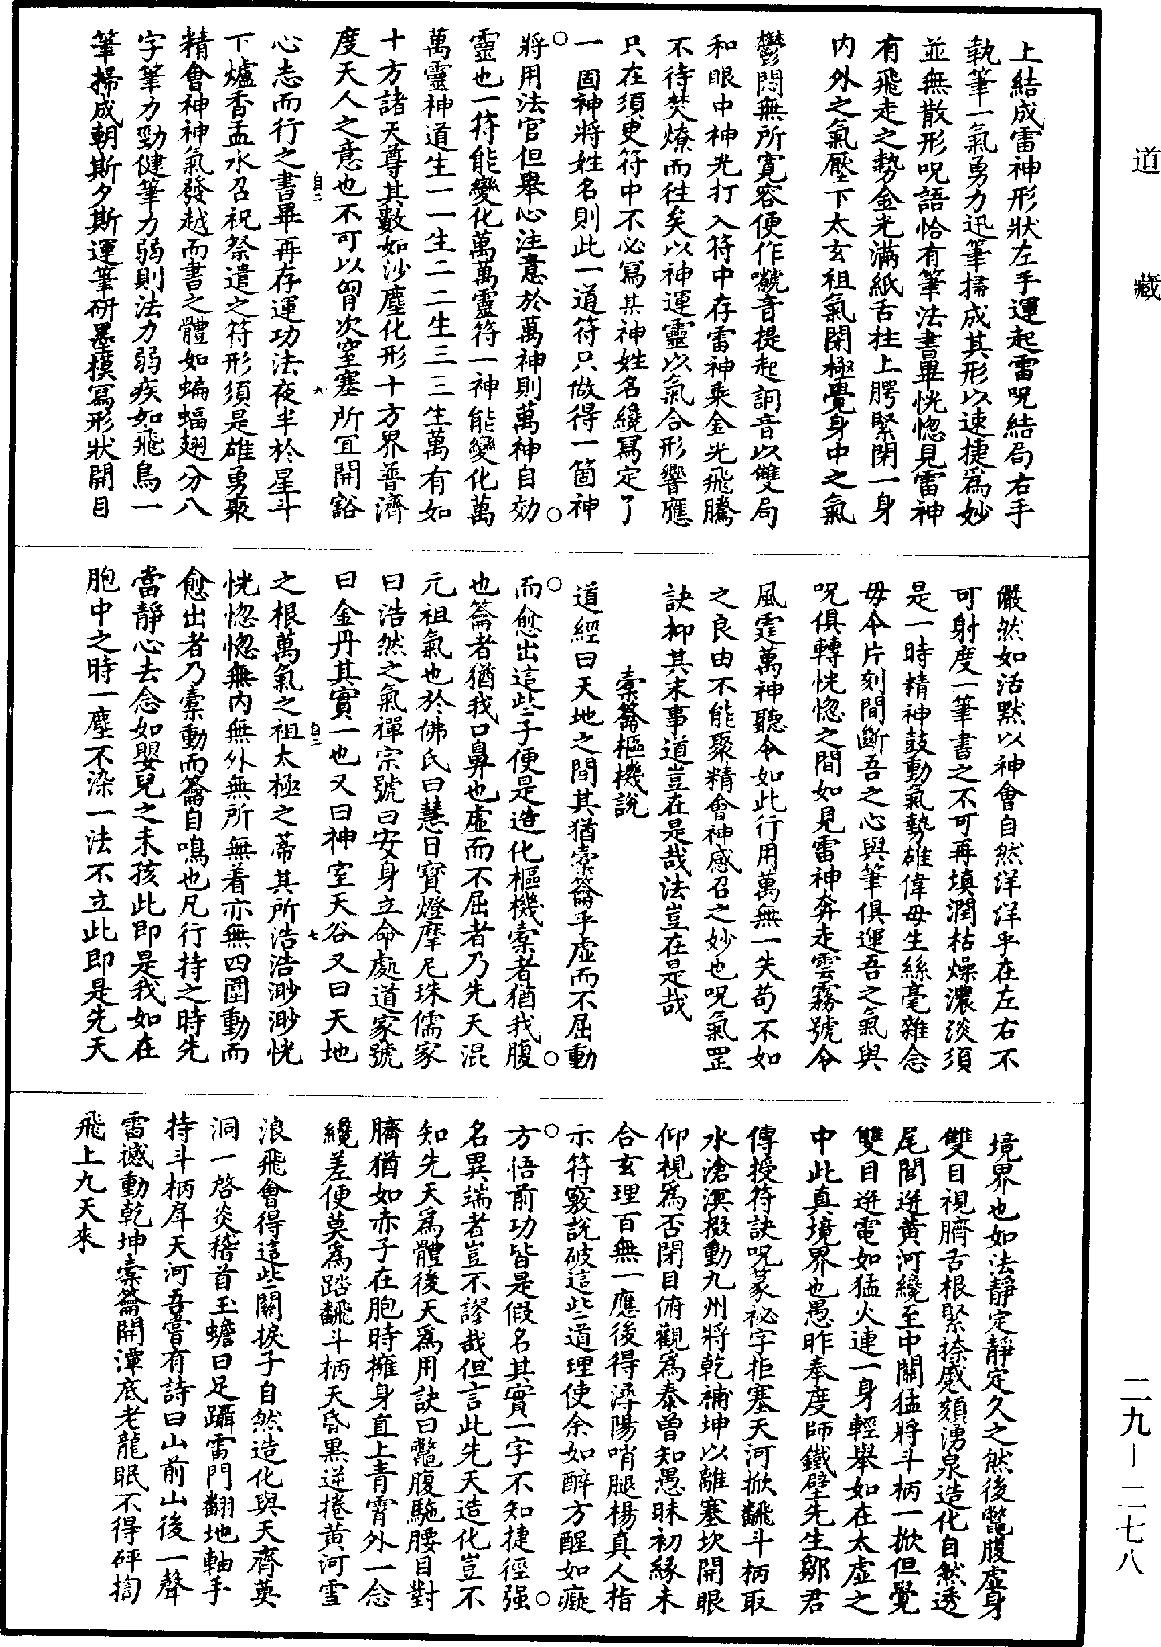 道藏
上結成雷神形狀左手運起雷呪結局右手
執筆一氣勇力迅筆掃成其形以速捷為妙
並無散形呪語恰有筆法書畢恍惚見雷神
有飛走之勢金光滿紙舌拄上腭緊閉一身
內外之氣壓下太玄祖氣閉極覺身中之氣
鬱悶無所寬容便作虩音提起訶音以雙局
和眼中神光打入符中存雷神乘金光飛騰
不待焚燎而往矣以神運靈以氣合形響應
只在須臾符中不必寫其神姓名纔寫定了
一箇神將姓名則此一道符只做得一箇神
將用法官但舉心注意於萬神則萬神自効
靈也一符能變化萬萬靈符一神能變化萬
萬靈神道生一一生二二生三三生萬有如
十方諸天尊其數如沙塵化形十方界普濟
度天人之意也不可以胷次窒塞所宜開豁
心志而行之書畢再存運功法夜半於星斗
下爐香盂水召祝祭遣之符形須是雄勇聚
精會神神氣發越而書之體如蝙蝠翅分八
字筆力勁健筆力弱則法力弱疾如飛鳥一
筆掃成朝斯夕斯運筆研墨摸寫形狀開目
儼然如活默以神會自然洋洋乎在左右不
可射度一筆書之不可再填潤枯燥濃淡須
是一時精神鼓動氣勢雄偉毋生絲毫雜念
毋令片刻間斷吾之心與筆俱運吾之氣與
呪俱轉恍惚之間如見雷神奔走雲霧號令
風霆萬神聽令如此行用萬無一失苟不如
之良由不能聚精會神感召之妙也呪氣罡
訣抑其末事道豈在是哉法豈在是哉
橐籥樞機說
道經曰天地之間其猶橐籥乎虛而不屈動
而愈出這些子便是造化樞機橐者猶我腹
也籥者猶我口鼻也虛而不屈者乃先天混
元祖氣也於佛氏曰慧日寶燈摩尼珠儒家
曰浩然之氣禪宗號曰安身立命處道家號
曰金丹其實一也又曰神室天谷又曰天地
之根萬氣之祖太極之蒂其所浩浩渺渺恍
恍惚惚無內無外無所無著亦無四圍動而
愈出者乃橐動而籥自鳴也凡行持之時先
當靜心去念如嬰兒之未孩此即是我如在
胞中之時一塵不染一法不立此即是先天
境界也如法靜定靜定久之然後鼈腹虛身
雙目視臍舌根緊捺蹙頞湧泉造化自然透
尾閭迸黃河繞至中關猛將斗柄一掀但覺
雙目迸電如猛火連一身輕舉如在太虛之
中此真境界也愚昨奉度師鐵壁先生鄒君
傳授符訣呪篆祕字拒塞天河掀飜斗柄取
水滄溟撥動九州將乾補坤以離塞坎開眼
仰視為否閉目俯觀為泰曾知愚昧初緣未
合玄理百無一應後得潯陽哨腿楊真人指
示符竅說破這些道理使余如醉方醒如癡
方悟前功皆是假名其實一字不知捷徑强
名異端者豈不謬哉但言此先天造化豈不
知先天為體後天為用訣曰鼈腹駞腰目對
臍猶如赤子在胞時擁身直上青霄外一念
纔差便莫為踏飜斗柄天昏黑逆捲黃河雪
浪飛會得這些關捩子自然造化與天齊英
洞一啓炎稽首玉蟾曰足躡雷門翻地軸手
持斗柄戽天河吾嘗有詩曰山前山後一聲
雷撼動乾坤橐籥開潭底老龍眠不得砰訇
飛上九天來
二九—二七八